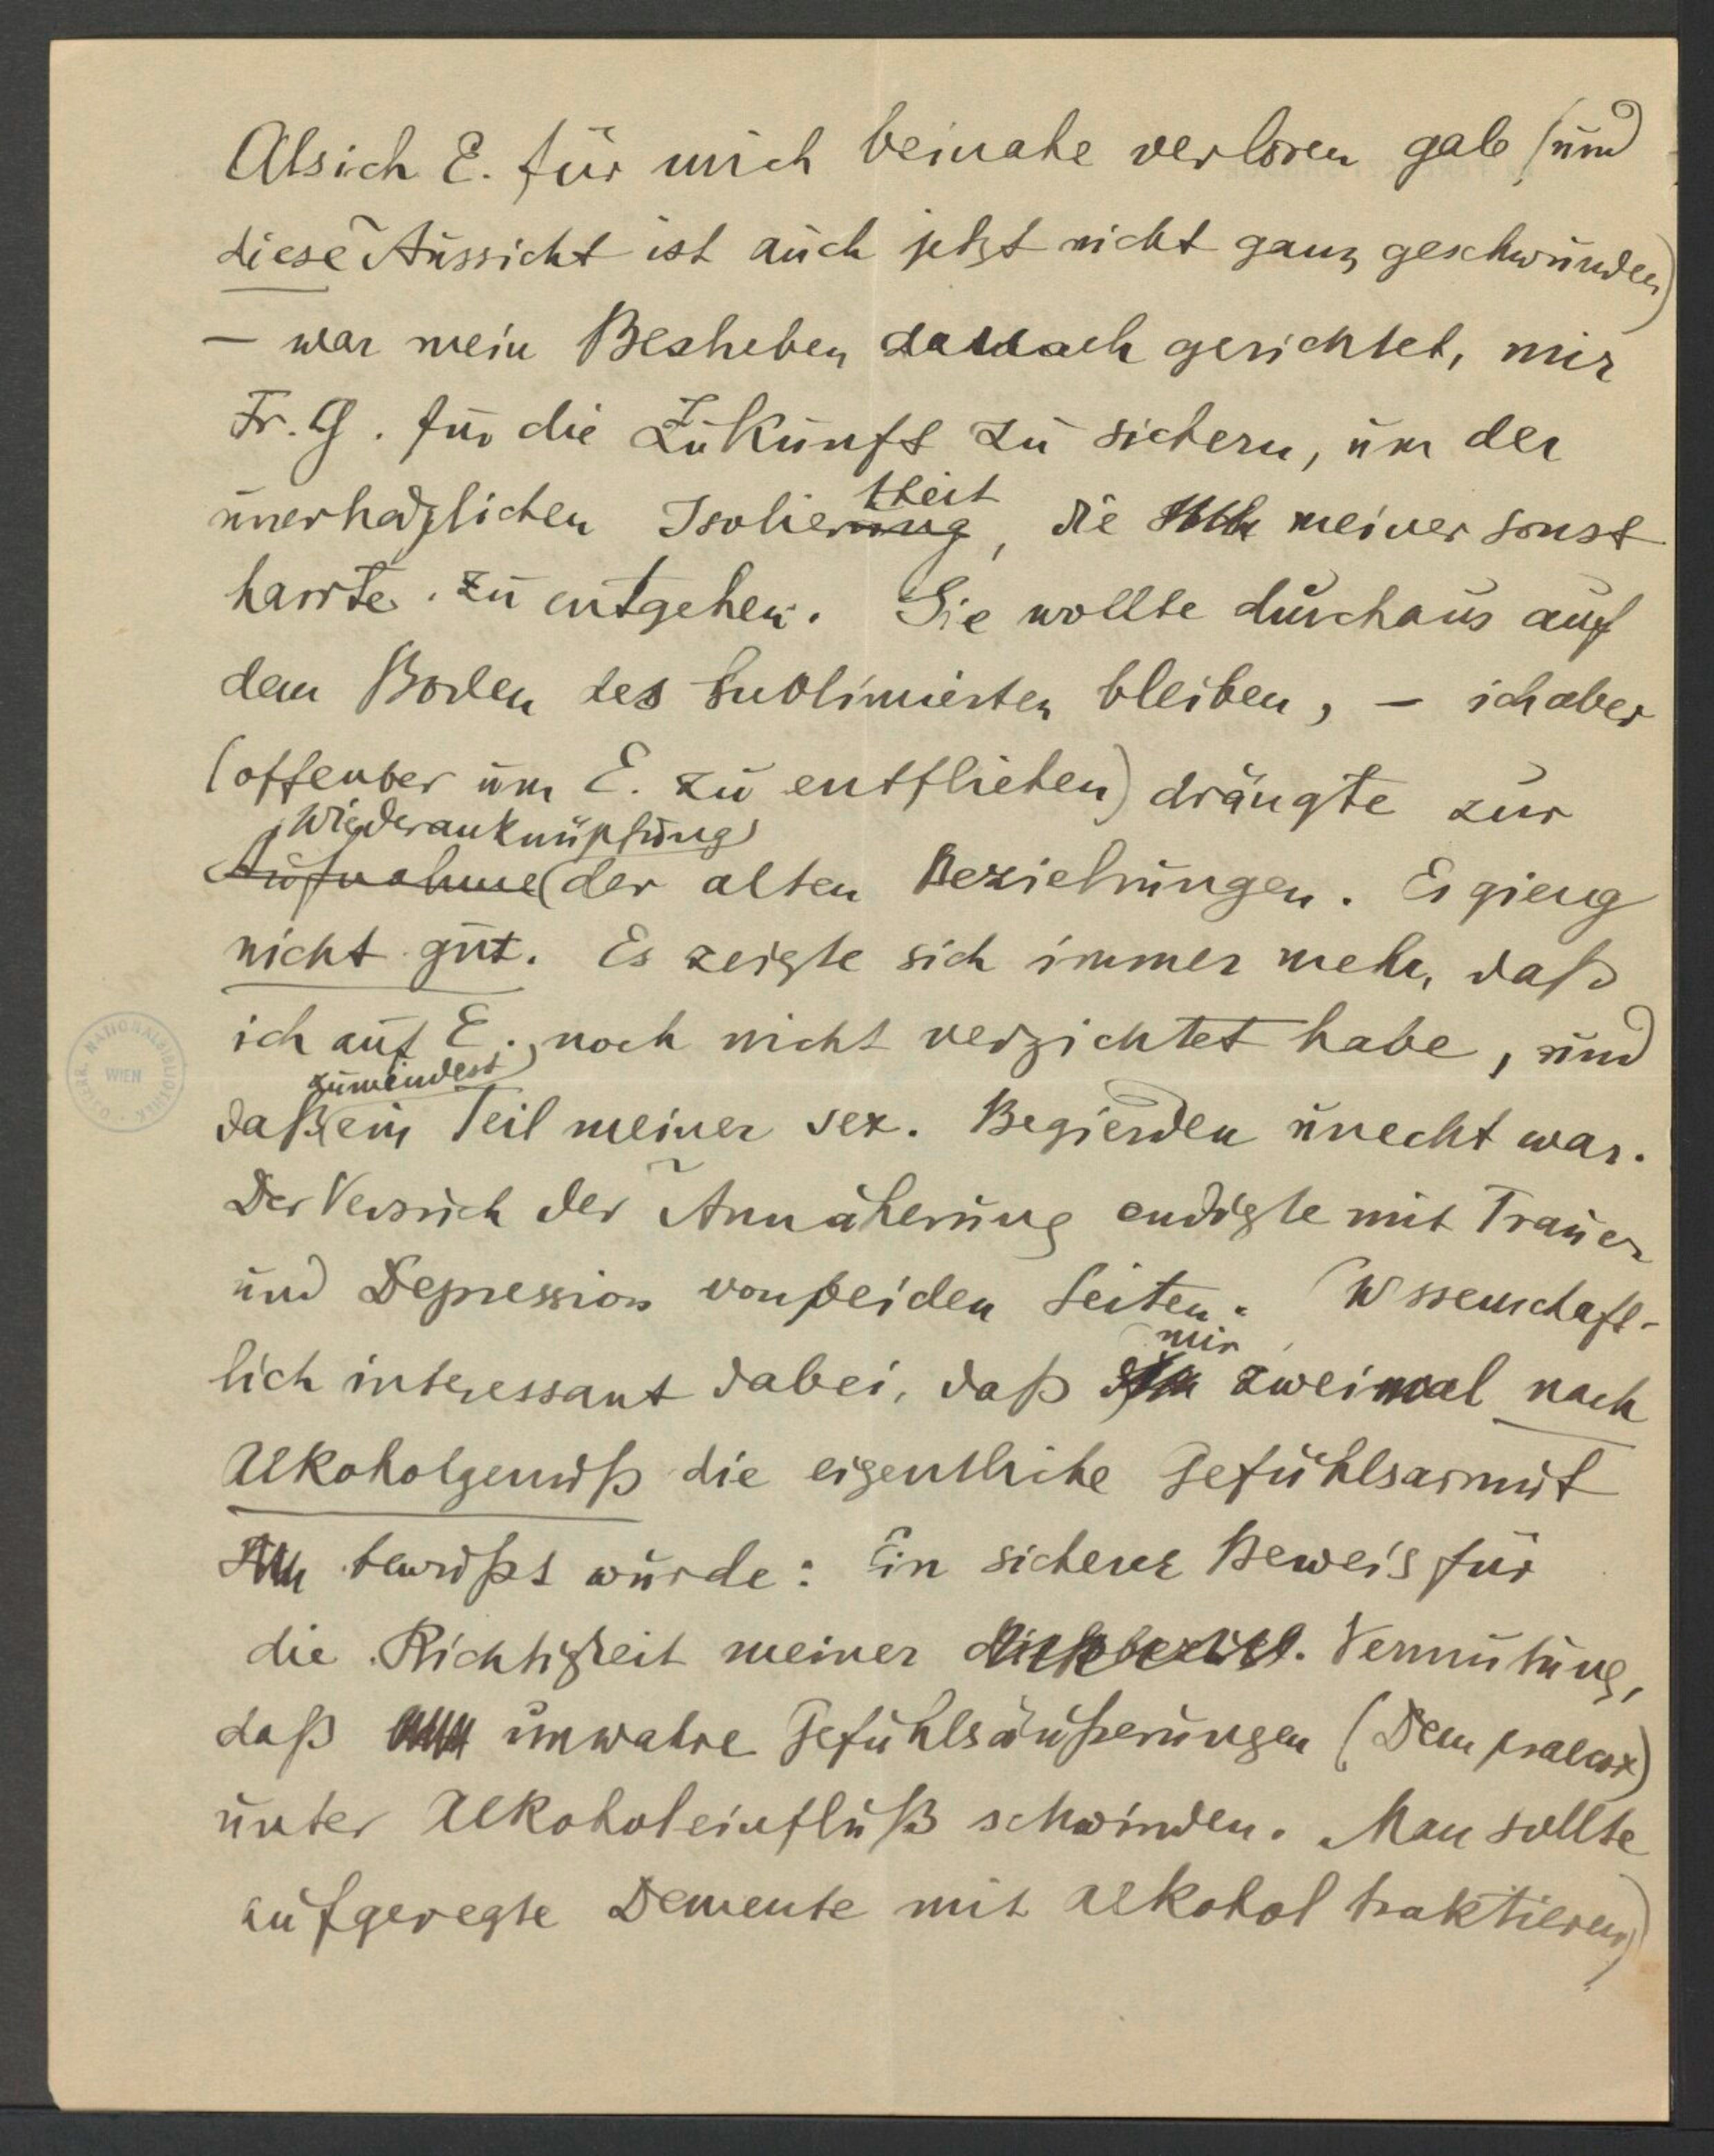 Als ich E. für mich beinahe verloren gab (und
diese Aussicht ist auch jetzt nicht ganz geschwunden)
– war mein Bestreben danach gerichtet, mir
Fr. G. für die Zukunft zu sichern, um der
unerträglichen Isoliertheit, die meiner sonst
harrte, zu entgehen. Sie wollte durchaus auf
dem Boden des Sublimierten bleiben, – ich aber
(offenbar um E. zu entfliehen) drängte zur
Wiederanknüpfung
Aufnahme der alten Beziehungen. Es gieng
nicht gut. Es zeigte sich immer mehr, daß
ich auf E. noch nicht verzichtet habe, und
zumindest
daß ein Teil meiner sex. Begierden unecht war.
Der Versuch der Annäherung endigte mit Trauer
und Depression von beiden Seiten. (Wissenschaft-
mir
lich interessant dabei, daß zweimal nach
Alkoholgenuß die eigentliche Gefühlsarmut
bewußt wurde: Ein sicherer Beweis für
die Richtigkeit meiner Vermutung,
daß unwahre Gefühlsäußerungen (Dem praecox)
unter Alkoholeinfluß schwinden. Man sollte
aufgeregte Demente mit Alkohol traktieren)
ÖSTERR. NATIONALBIBLIOTHEK
WIEN